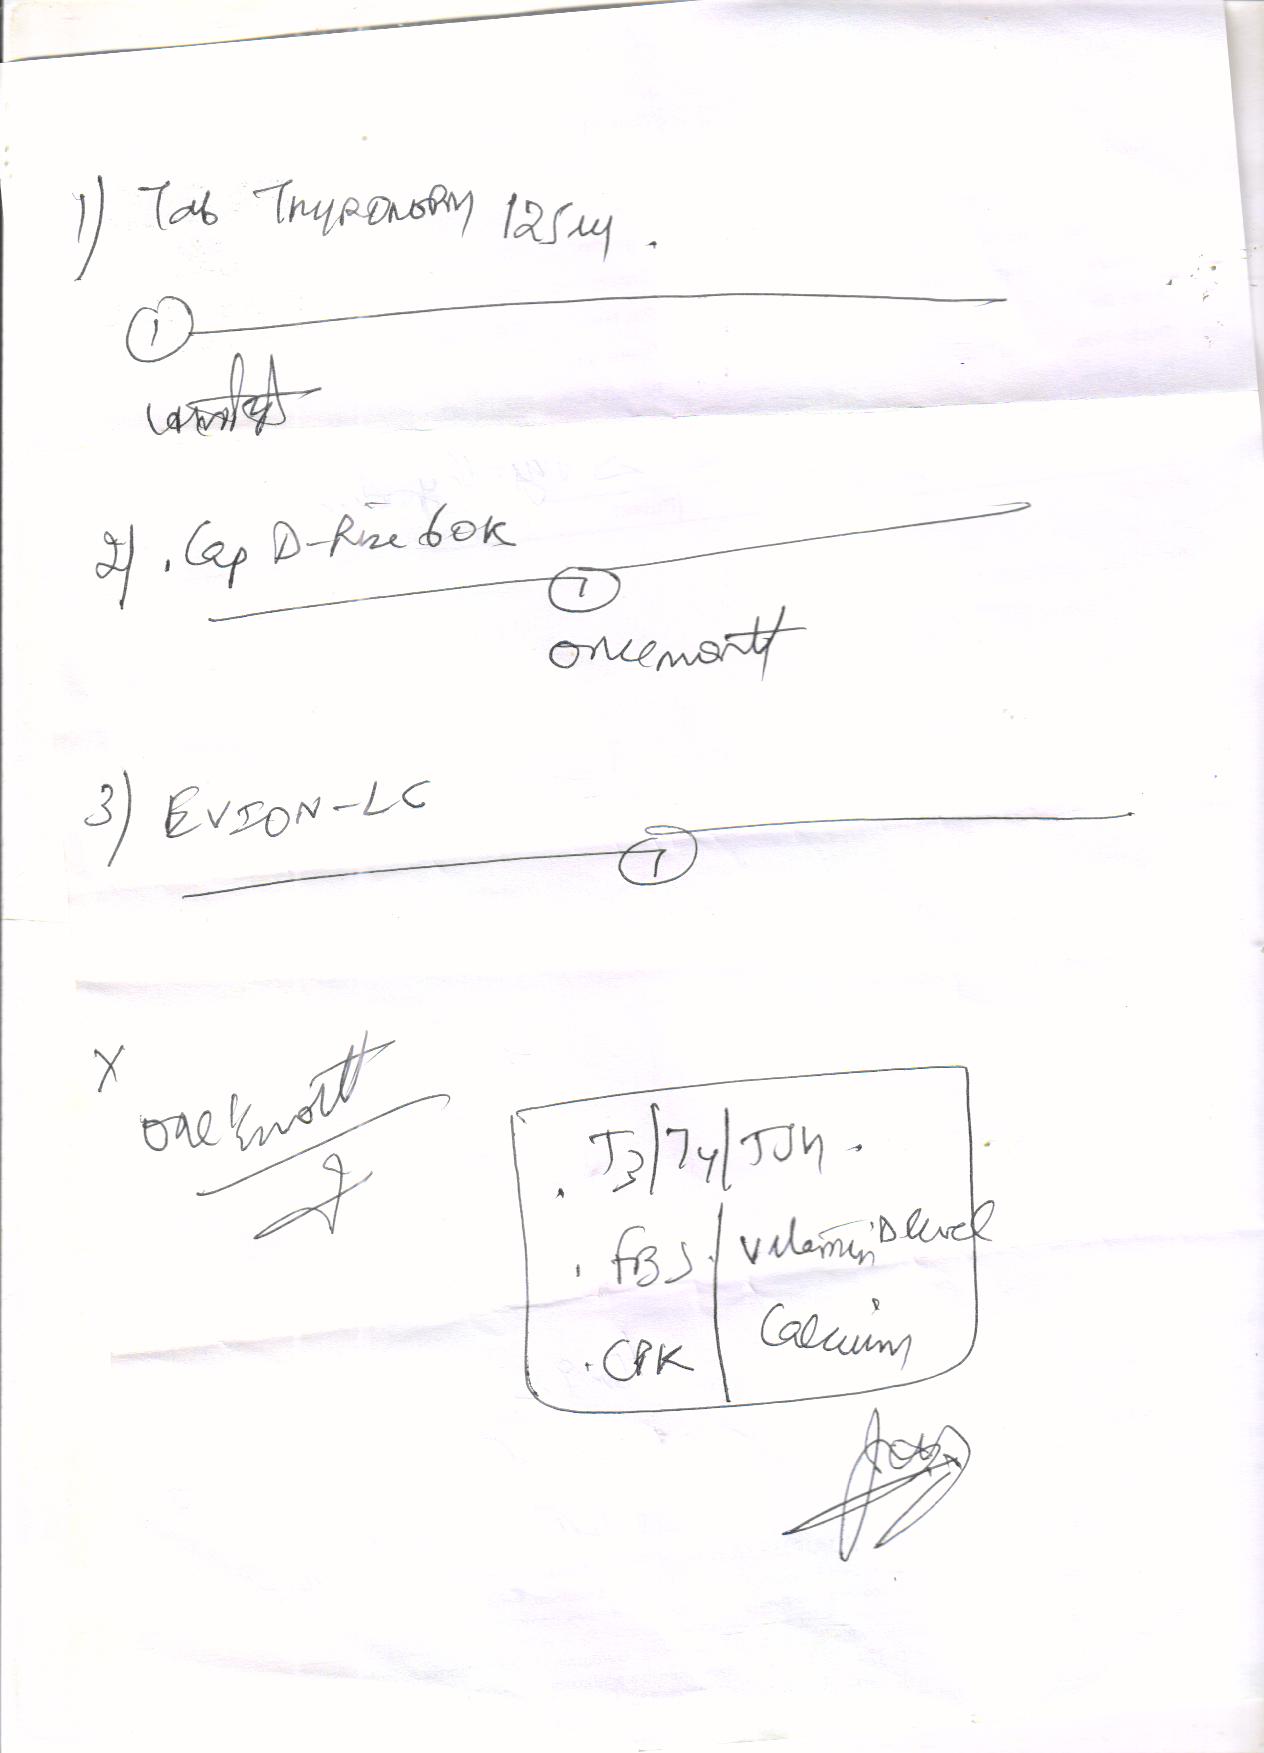 1) Tab THYRONORM 125 μg.
1
empty st
2) . Cap D-Rise 60K
1
once month
3) EVION-LC
1
X
one month
. T3/T4/TSH.
. FBS. Vitamin D level
. CPK Calcium